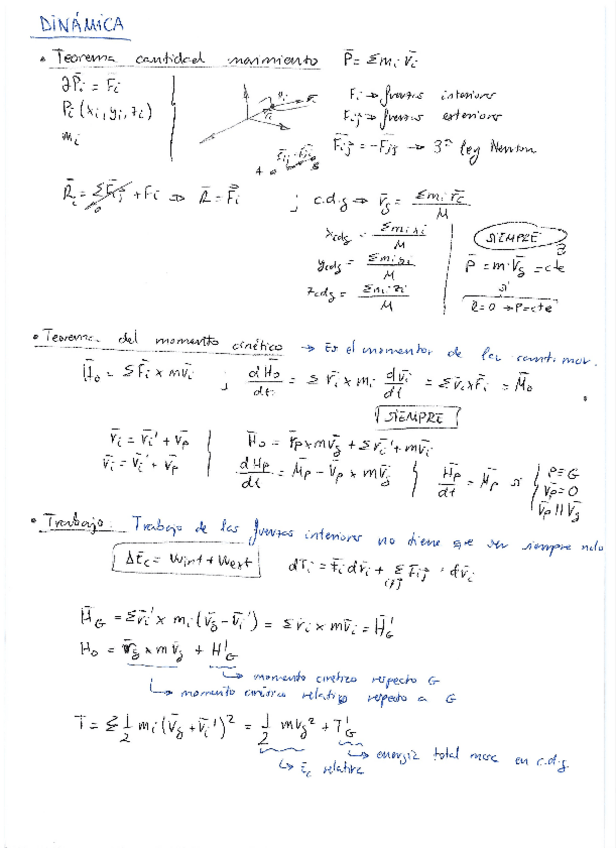 DINÁMICA
• Teorema cantidad movimiento P̄ = Σmi v̄i
∂P̄i = F̄i
Pi (xi, yi, zi)
mi
Fi → fuerzas interiores
Fij → fuerzas exteriores
F̄ij = -F̄ji → 3ª ley Newton
R̄i = ΣF̄ij + Fi ⇒ R̄ = F̄i ; c.d.g → r̄g = Σmi r̄i / M
xcdg = Σmi xi / M
ycdg = Σmi yi / M
zcdg = Σmi zi / M
SIEMPRE
P̄ = m·V̄g = cte
si
R=0 → P=cte
• Teorema del momento cinético → Es el momento de la cant. mov.
H̄o = Σr̄i × mv̄i ; dH̄o/dt = Σ r̄i × mi dv̄i/dt = Σr̄i × F̄i = M̄o
SIEMPRE
r̄i = r̄i' + r̄p
v̄i = v̄i' + v̄p
H̄o = r̄p × mv̄g + Σr̄i' + mv̄i
dH̄p/dt = M̄p - V̄p × mv̄g
H̄p/dt = M̄p si
P=G
V̄p=0
V̄p || V̄g
• Trabajo: Trabajo de las fuerzas interiores no tiene que ser siempre nulo
ΔEc = Wint + Wext
dTi = F̄i dr̄i + Σ F̄ij · dr̄i
i≠j
H̄G = Σr̄i' × mi (v̄g - v̄i') = Σr̄i × mv̄i = H̄'G
Ho = r̄g × mv̄g + H'G
→ momento cinético respecto G
→ momento cinético relativo respecto a G
T = Σ ½ mi (v̄g + v̄i')² = ½ mvg² + T'G
→ energía total masa en c.d.g.
→ Ec relativa